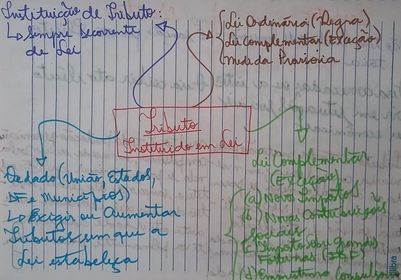 Instituição de Tributo:
↳ Sempre decorrente
de Lei
Lei Ordinária (Regra)
Lei Complementar (Exceção)
Medida Provisória
Tributo
Instituído em Lei
Vedado (União, Estados,
DF e Municípios)
↳ Exigir ou Aumentar
Tributos sem que a
Lei estabeleça
Lei Complementar
(Exceção)
a) Novos Impostos
b) Novas Contribuições
Sociais
c) Imposto sobre Grandes
Fortunas
d) Empréstimo Compulsório